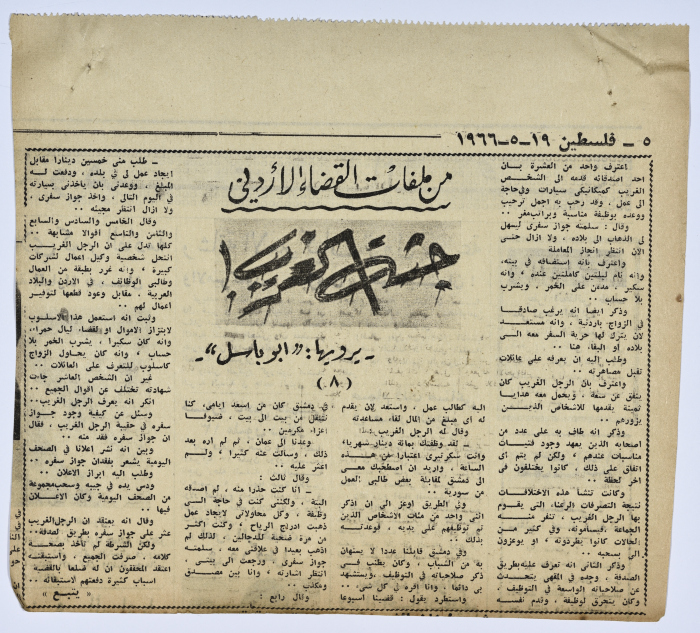 ٥ ـ فلسطين ١٩-٥-١٩٦٦
من ملفات القضاء الأردني
جثة الغريب !
ـ يرويها : « ابو باسل » ـ
( ٨ )
اعترف واحد من العشرة بان
احد اصدقائه قدمه الى الشخص
الغريب كميكانيكي سيارات وفي حاجة
الى عمل ، وقد رحب به اجمل ترحيب
ووعده بوظيفة مناسبة وبراتب مغر ..
وقال : سلمته جواز سفري ليسهل
لي الذهاب الى بلاده ، ولا ازال حتى
الان انتظر انجاز المعاملة
واعترف بانه استضافه في بيته،
وانه نام ليلتين كاملتين عنده ، وانه
سكير ، مدمن على الخمر ، ويشرب
بلا حساب ..
وذكر ايضا انه يرغب صادقا
في الزواج باردنية ، وانه مستعد
لان يترك لها حرية السفر معه الى
بلاده او البقاء هنا ..
وطلب اليه ان يعرفه على عائلات
تقبل مصاهرته ..
واعترف بان الرجل الغريب كان
ينفق عن سعة ، ويحمل معه هدايا
ثمينة يقدمها للاشخاص الذين
يزورهم ..
وذكر انه طاف به على عدد من
اصحابه الذين يعهد وجود فتيات
مناسبات عندهم ، ولكن لم يتم اي
اتفاق على ذلك ، كانوا يختلفون في
اخر لحظة ..
وكانت تنشا هذه الاختلافات
نتيجة التصرفات الرعناء التي يقوم
بها الرجل الغريب ، تنفر منه
الجماعة ، فيسأمونه ، وفي كثير من
الحالات كانوا يطردونه ، او يوعزون
الي بسحبه ..
وذكر الثاني انه تعرف عليه بطريق
الصدفة ، وجده في المقهى يتحدث
عن صلاحياته الواسعة في التوظيف ،
وكان يتحرق لوظيفة ، وقدم نفسه
اليه كطالب عمل ، واستعد لان يقدم
له اي مبلغ من المال لقاء مساعدته
وقال له الرجل الغريب عندها :
ـ لقد وظفتك بمائة دينار شهريا ،
وانت سكرتيري اعتبارا من هذه
الساعة ، واريد ان اصطحبك معي
الى دمشق لمقابلة بعض طالبي العمل
من سورية ..
وفي الطريق اوعز الى ان اذكر
الى واحد من مئات الاشخاص الذين
تم توظيفهم على يديه ، فوعدته
بذلك ..
وفي دمشق قابلنا عددا لا يستهان
به من الشباب ، وكان يطنب في
ذكر صلاحياته في التوظيف ، ويستشهد
بي دائما ، وانا اقره في كل شيء ..
واستطرد يقول : قضينا اسبوعا
في دمشق كان من اسعد ايامي، كنا
ننتقل من بيت الى بيت ، ضيوفا
اعزاء مكرمين ..
وعدنا الى عمان ، ثم لم اره بعد
ذلك ، وسالت عنه كثيرا ، ولم
اعثر عليه ..
وقال ثالث :
ـ انا كنت حذرا منه ، لم اصدقه
البتة ، ولكنني كنت في حاجة الى
وظيفة ، وكل محاولاتي لايجاد عمل
ذهبت ادراج الرياح ، وكنت اكثر
من مرة ضحية للدجالين ، لذلك لم
اذهب بعيدا في علاقتي معه ، سلمته
جواز سفري ، ورجعت الى بيتي ،
انتظر اشارته ، وانا بين مصدق
ومكذب ..
وقال رابع :
ـ طلب مني خمسين دينارا مقابل
ايجاد عمل لي في بلده ، ودفعت له
المبلغ ، ووعدني بان ياخذني بسيارته
في اليوم التالي ، واخذ جواز سفري ،
ولا ازال انتظر مجيئه ..
وقال الخامس والسادس والسابع
والثامن والتاسع اقوالا مشابهة ..
كلها تدل على ان الرجل الغريب
انتحل شخصية وكيل اعمال لشركات
كبيرة ، وانه غرر بطبقة من العمال
وطالبي الوظائف ، في الاردن والبلاد
العربية ، مقابل وعود قطعها لتوفير
اعمال لهم ..
وثبت انه استعمل هذا الاسلوب
لابتزاز الاموال او لقضاء ليال حمراء،
وانه كان سكيرا ، يشرب الخمر بلا
حساب ، وانه كان يحاول الزواج
كاسلوب للتعرف على العائلات ..
غير ان الشخص العاشر جاءت
شهادته تختلف عن اقوال الجميع ..
انكر انه يعرف الرجل الغريب ..
وسئل عن كيفية وجود جواز
سفره في حقيبة الرجل الغريب ، فقال
ان جواز سفره فقد منه ..
وبين انه نشر اعلانا في الصحف
اليومية يشعر بفقدان جواز سفره ..
وطلب اليه ابراز الاعلان ..
ودس يده في جيبه وسحب مجموعة
من الصحف اليومية وكان الاعلان
فيها ..
وقال انه يعتقد ان الرجل الغريب
عثر على جواز سفره بطريق الصدفة..
ولكن الشرطة لم تاخذ بصحة
كلامه ، صرفت الجميع ، واستبقته
اعتقد المحققون ان له ضلعا بالقضية
اسباب كثيرة دفعتهم لاستبقائه ..
« يتبع »